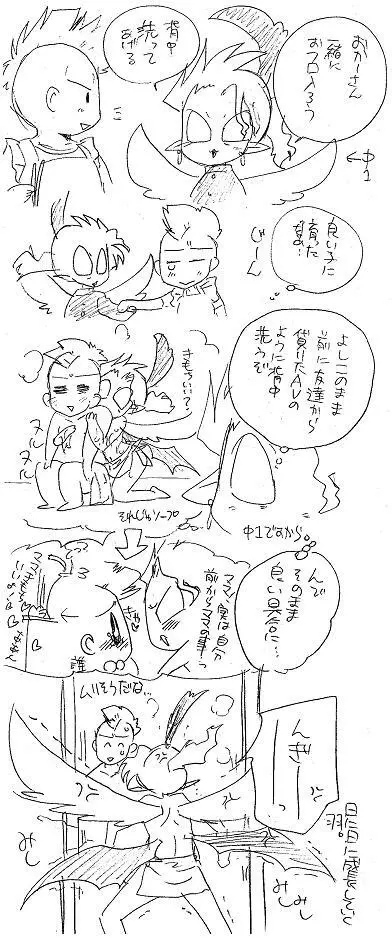 おかーさん
一緒に
おフロ入ろう
背中
洗って
あげる
←中1
良い子に
育った
なあ…
じーん
よしこのまま
前に友達から
借りたAVの
ように背中
洗うぞ
きもちいい?
ヌル
ヌル
それじゃソープ
中1ですから。
んで
そのまま
良い具合に…
ママ、実は自分
前からママの事…っ
きゃ
誰
ムリそうだね…
んぎーー
みし
みし
みし
日に日に成長していく
羽。